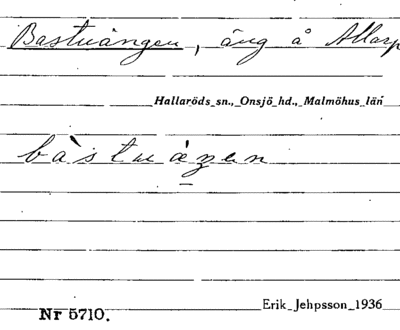 Bastuängen, äng å Allarp
Hallaröds sn., Onsjö hd., Malmöhus län
bàstuáṉen
Erik Jehpsson 1936
Nr 5710.